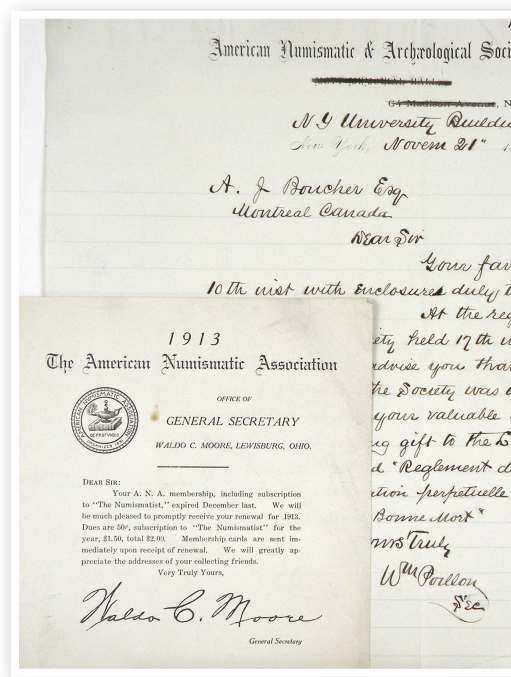 American Numismatic & Archæological Soci
64 Madison Avenue, N
N Y University Buildi
New York, Novem 21"
A. J Boucher Esq
Montreal Canada
Dear Sir
Your fav
10th inst with enclosures duly
At the reg
ety held 17th
dvise you that
the Society was
your valuable
ng gift to the L
d "Reglement d
ation perpetuelle
Bonne Mort"
ours Truly
Wm Poillon
Sec
1913
The American Numismatic Association
AMERICAN NUMISMATIC ASSOCIATION
OFFICE OF
GENERAL SECRETARY
WALDO C. MOORE, LEWISBURG, OHIO.
DEAR SIR:
Your A. N. A. membership, including subscription
to "The Numismatist," expired December last. We will
be much pleased to promptly receive your renewal for 1913.
Dues are 50¢, subscription to "The Numismatist" for the
year, $1.50, total $2.00. Membership cards are sent im-
mediately upon receipt of renewal. We will greatly ap-
preciate the addresses of your collecting friends.
Very Truly Yours,
Waldo C. Moore
General Secretary